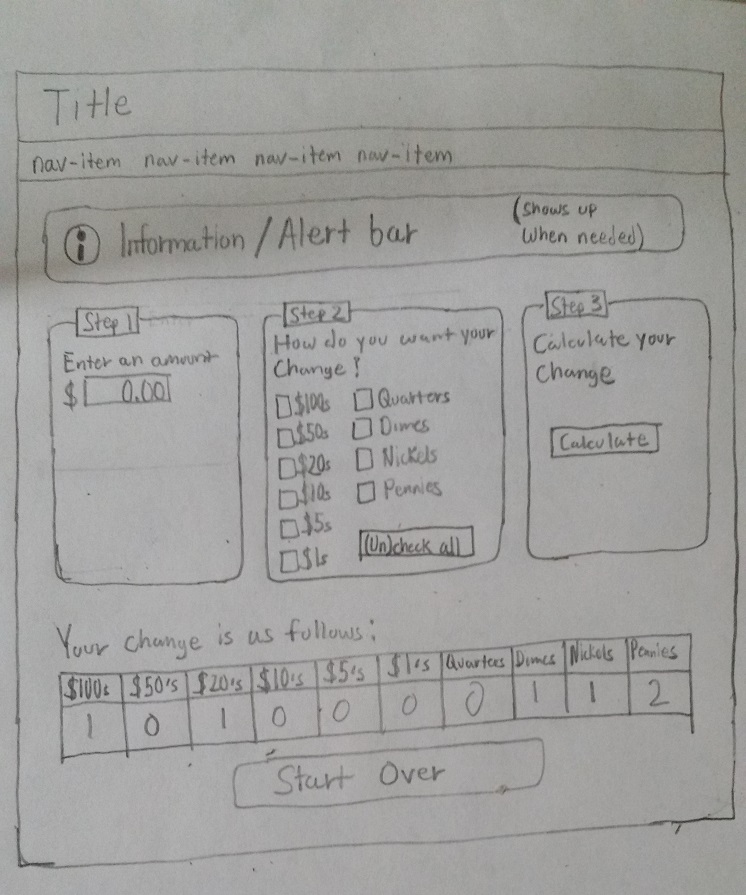 Title
nav-item nav-item nav-item nav-item
i Information / Alert bar
(shows up
when needed)
Step 1
Enter an amount
$ 0.00
Step 2
How do you want your
Change?
$100s
$50s
$20s
$10s
$5s
$1s
Quarters
Dimes
Nickels
Pennies
(Un)check all
Step 3
Calculate your
change
Calculate
Your change is as follows:
$100s $50's $20's $10's $5's $1's Quarters Dimes Nickels Pennies
1 0 1 0 0 0 0 1 1 2
Start Over